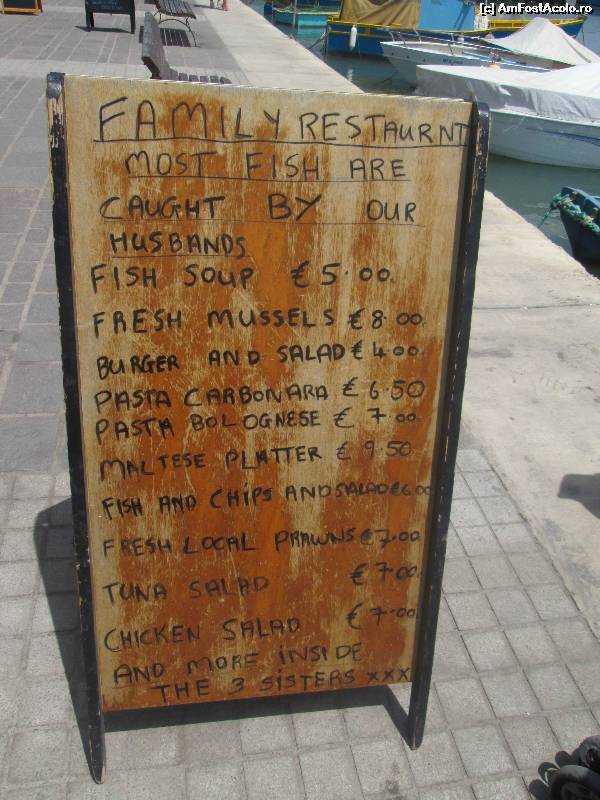 (c) AmFostAcolo.ro
FAMILY RESTAURNT
MOST FISH ARE
CAUGHT BY OUR
HUSBANDS
FISH SOUP €5.00.
FRESH MUSSELS €8.00.
BURGER AND SALAD €4.00.
PASTA CARBONARA €6.50
PASTA BOLOGNESE €7.00.
MALTESE PLATTER €9.50
FISH AND CHIPS AND SALAD €6.00
FRESH LOCAL PRAWNS €7.00
TUNA SALAD €7.00.
CHICKEN SALAD €7.00.
AND MORE INSIDE
THE 3 SISTERS xxx